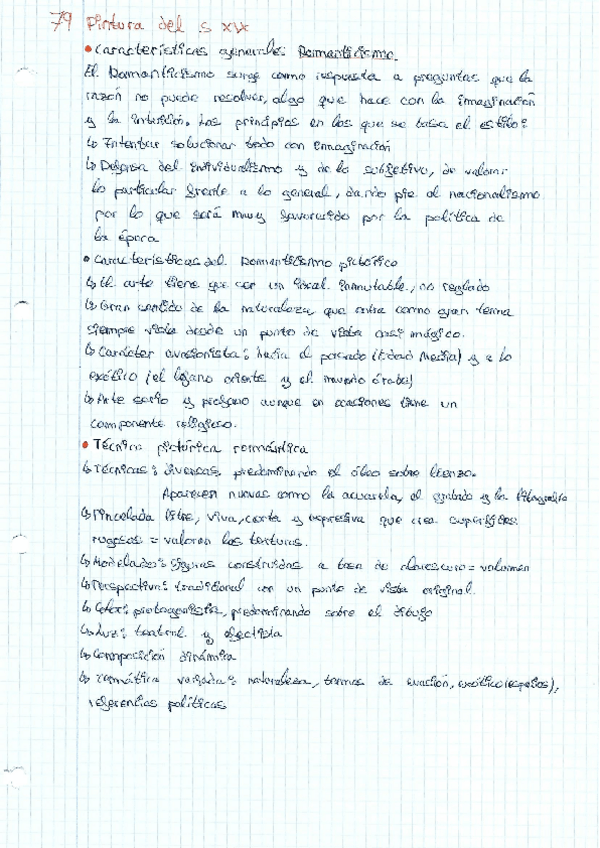 79 Pintura del s XIX
• Características generales Romanticismo.
El Romanticismo surge como respuesta a preguntas que la
razón no puede resolver, algo que hace con la imaginación
y la intuición. Los principios en los que se basa el estilo:
↳ Intentar solucionar todo con imaginación
↳ Defensa del individualismo y de lo subjetivo, de valorar
lo particular frente a lo general, dando pie al nacionalismo
por lo que será muy favorecido por la política de
la época
• Características del Romanticismo pictórico
↳ El arte tiene que ser un ideal inmutable, no reglado
↳ Gran sentido de la naturaleza, que entra como gran tema
siempre vista desde un punto de vista casi mágico.
↳ Carácter evasionista: hacia el pasado (Edad Media) y a lo
exótico (el lejano oriente y el mundo árabe)
↳ Arte serio y profano aunque en ocasiones tiene un
componente religioso.
• Técnica pictórica romántica
↳ Técnicas: diversas, predominando el óleo sobre lienzo.
Aparecen nuevas como la acuarela, el grabado y la litografía
↳ Pincelada libre, viva, corta y expresiva que crea superficies
rugosas = valoran las texturas.
↳ Modelados: figuras construidas a base de claroscuro = volumen
↳ Perspectiva: tradicional con un punto de vista original.
↳ Color: protagonista, predominando sobre el dibujo
↳ Luz: teatral y efectista
↳ Composición dinámica
↳ Temática variada: naturaleza, temas de evasión, exótico
referencias políticas